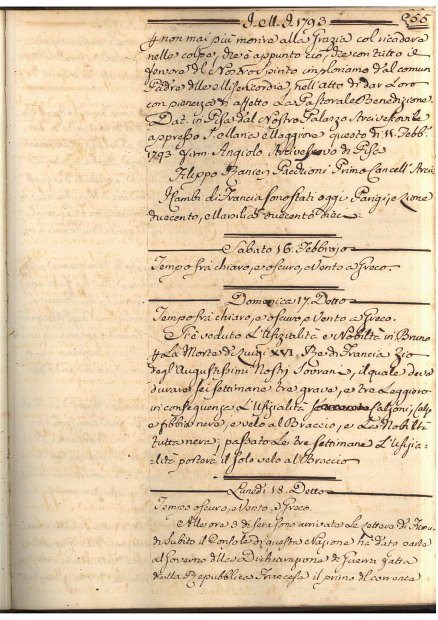 J. M. J. 1793 255
non mai più morire alla Grazia col ricadere
nelle colpe, che è appunto ciò, che con tutto il
fervore del Nostro spirito imploriamo dal comun
Padre delle Misericordie, nell'atto di dar Loro
con pienezza di affetto La Pastorale Benedizione.
Dat. in Pisa dal Nostro Palazzo Arcivescovale
appresso S. Maria Maggiore questo dì 11. Febb.
1793 Angiolo Arcivescovo di Pisa
Filippo Primo Cancell. Arciv.
I Cambi di Francia sono stati oggi Parigi
duecento, e Marsilia duecento dieci
Sabato 16. Febbrajo
Tempo frà chiaro, e oscuro, e Vento a Greco.
Domenica 17. Detto
Tempo frà chiaro, e oscuro, e Vento a Greco.
Si è veduto L'Ufizialità e Nobiltà in Bruno
La Morte di Luigi XVI. Re di Francia Zio
degl'Augustissimi Nostri Sovrani, il quale deve
durare sei settimane tre grave, e tre Leggiero
in conseguenza L'Ufizialità Calzoni, Calze
e fibbie nere, e velo al Braccio, e La Nobiltà
tutta nera; passate Le tre settimane L'Ufizia-
lità porterà il solo velo al Braccio
Lunedì 18. Detto
Tempo oscuro, e Vento a Greco.
Alle ore 3 di sera sono arrivate Le Lettere di
Subito il Console di questa Nazione hà dato parte
al Governo della Dichiarazione di Guerra fatta
dalla Repubblica Francese il primo del corrente